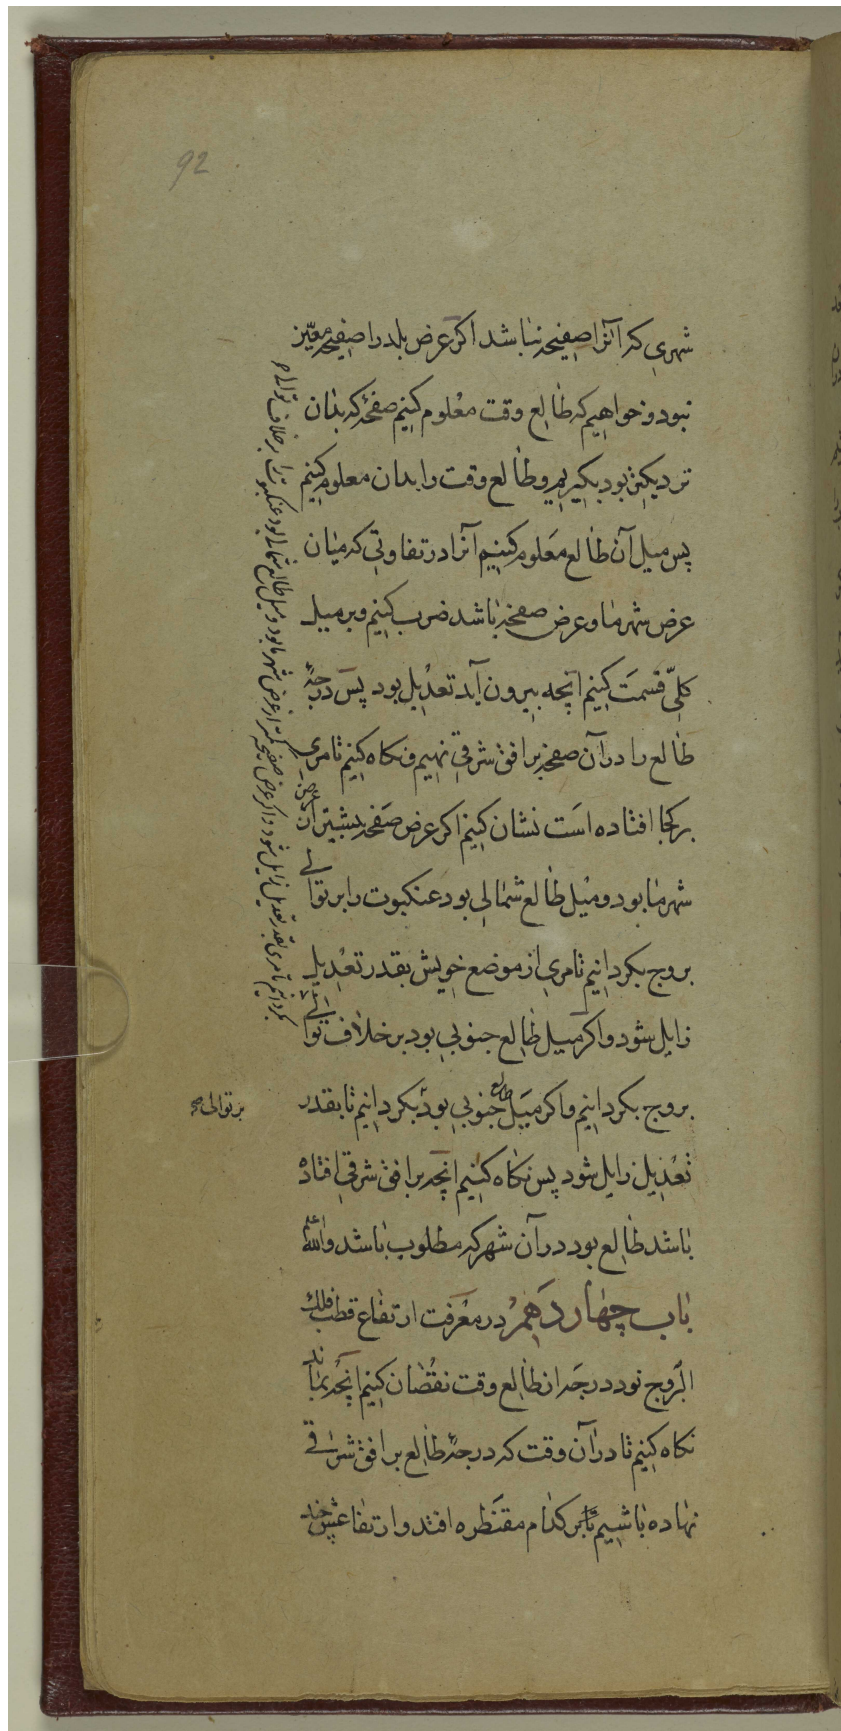 92
شهری که آنرا صفیحه نباشد اکر عرض بلد را صفیحه معیّن
نبود و خواهیم که طالع وقت معلوم کنیم صفحهٔ که بدان
نزدیکتر بود بکیریم و طالع وقت را بدان معلوم کنیم
پس میل آن طالع معلوم کنیم آنرا در تفاوتی که میان
عرض شهر ما و عرض صفحه باشد ضرب کنیم و بر میل
کلّی قسمت کنیم آنچه بیرون آید تعدیل بود پس درجهٔ
طالع را در آن صفحه بر افق شرقی نهیم و نکاه کنیم تا مری
بر کجا افتاده است نشان کنیم اکر عرض صفحه بیشتر از عرض
شهر ما بود و میل طالع شمالی بود عنکبوت را بر توالی
بروج بکردانیم تا مری از موضع خویش بقدر تعدیل
زایل شود و اکر میل طالع جنوبی بود بر خلاف توالی
بروج بکردانیم و اکر میل طالع جنوبی بود بکردانیم تا بقدر
بر توالی صح
تعدیل زایل شود پس نکاه کنیم آنچه بر افق شرقی افتاده
باشد طالع بود در آن شهر که مطلوب باشد والله اعلم
باب چهاردهم در معرفت ارتفاع قطب فلک
البروج نود درجه از طالع وقت نقصان کنیم آنچه بماند
نکاه کنیم تا در آن وقت که درجهٔ طالع بر افق شرقی
نهاده باشیم تا بر کدام مقنطره افتد و ارتفاعش چند
و اکر عرض صفیحه کمتر از عرض شهر ما بود و میل طالع شمالی بود عنکبوت را بر خلاف توالی
بکردانیم تا مری بقدر تعدیل زایل شود